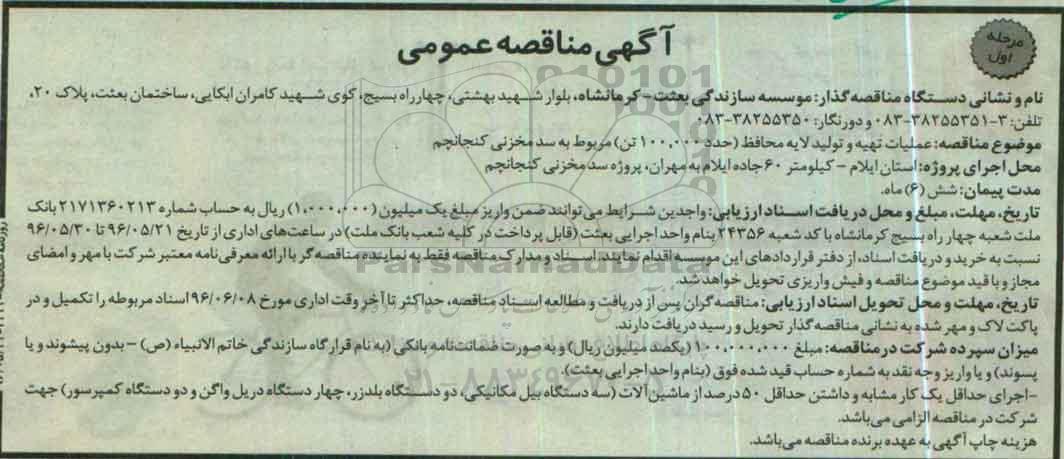 مرحله
اول
آگهی مناقصه عمومی
نام و نشانی دستگاه مناقصه گذار: موسسه سازندگی بعثت - کرمانشاه، بلوار شهید بهشتی، چهارراه بسیج، کوی شهید کامران ابکایی، ساختمان بعثت، پلاک ۲۰،
تلفن: ۳-۳۸۲۵۵۳۵۱-۰۸۳ و دورنگار: ۳۸۲۵۵۳۵۰-۰۸۳
موضوع مناقصه: عملیات تهیه و تولید لایه محافظ (حدد ۱۰۰,۰۰۰ تن) مربوط به سد مخزنی کنجانچم
محل اجرای پروژه: استان ایلام - کیلومتر ۶۰ جاده ایلام به مهران، پروژه سد مخزنی کنجانچم
مدت پیمان: شش (۶) ماه.
تاریخ، مهلت، مبلغ و محل دریافت اسناد ارزیابی: واجدین شرایط می توانند ضمن واریز مبلغ یک میلیون (۱,۰۰۰,۰۰۰) ریال به حساب شماره ۲۱۷۱۳۶۰۲۱۳ بانک
ملت شعبه چهار راه بسیج کرمانشاه با کد شعبه ۲۴۳۵۶ بنام واحد اجرایی بعثت (قابل پرداخت در کلیه شعب بانک ملت) در ساعت های اداری از تاریخ ۹۶/۰۵/۲۱ تا ۹۶/۰۵/۳۰
نسبت به خرید و دریافت اسناد، از دفتر قراردادهای این موسسه اقدام نمایند. اسناد و مدارک مناقصه فقط به نماینده مناقصه گر با ارائه معرفی نامه معتبر شرکت با مهر و امضای
مجاز و با قید موضوع مناقصه و فیش واریزی تحویل خواهد شد.
تاریخ، مهلت و محل تحویل اسناد ارزیابی: مناقصه گران پس از دریافت و مطالعه اسناد مناقصه، حداکثر تا آخر وقت اداری مورخ ۹۶/۰۶/۰۸ اسناد مربوطه را تکمیل و در
پاکت لاک و مهر شده به نشانی مناقصه گذار تحویل و رسید دریافت دارند.
میزان سپرده شرکت در مناقصه: مبلغ ۱۰۰,۰۰۰,۰۰۰ (یکصد میلیون ریال) و به صورت ضمانت نامه بانکی (به نام قرارگاه سازندگی خاتم الانبیاء (ص) - بدون پیشوند و یا
پسوند) و یا واریز وجه نقد به شماره حساب قید شده فوق (بنام واحد اجرایی بعثت).
-اجرای حداقل یک کار مشابه و داشتن حداقل ۵۰ درصد از ماشین آلات (سه دستگاه بیل مکانیکی، دو دستگاه بلدزر، چهار دستگاه دریل واگن و دو دستگاه کمپرسور) جهت
شرکت در مناقصه الزامی می باشد.
هزینه چاپ آگهی به عهده برنده مناقصه می باشد.
ParsNamadData
۰۲۱-۸۸۳۴۹۶۷۰